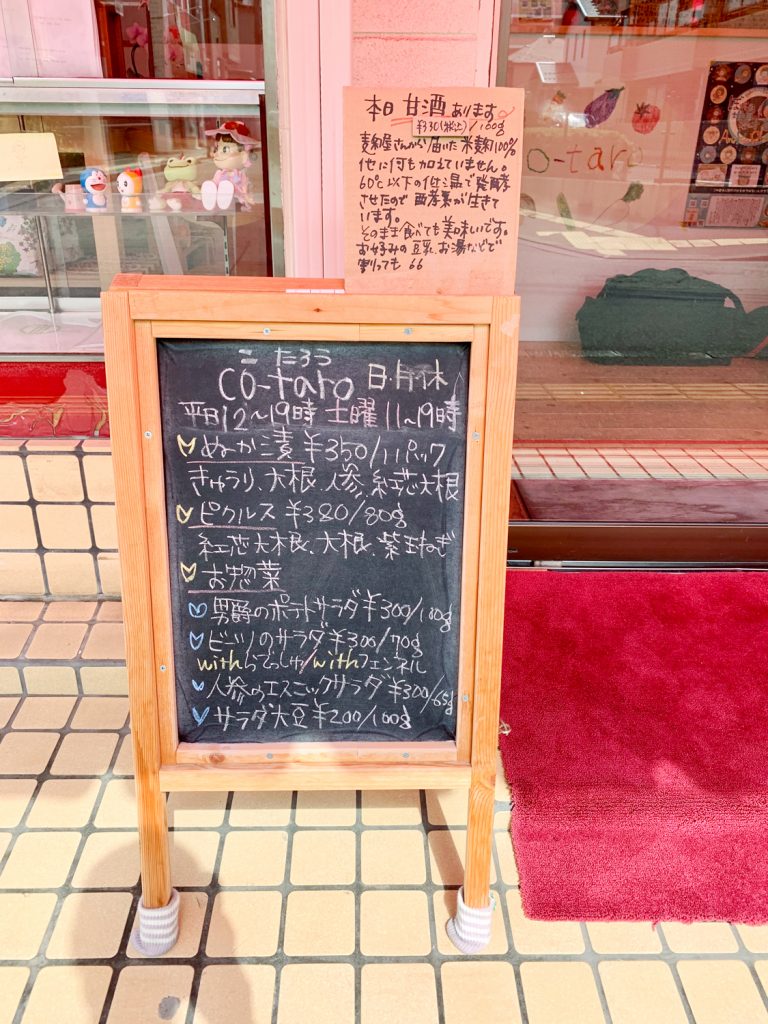 本日 甘酒 あります。
麹屋さんから届いた米麹100%
他に何も加えていません。
60℃以下の低温で発酵
させたので 酵素が生きて
います。
そのまま食べても美味いです。
お好みの豆乳、お湯などで
割っても
こ たろう
co-taro 日・月休
平日12〜19時 土曜11〜19時
ぬか漬 ¥350/1パック
きゅうり、大根、人参、紅芯大根
ピクルス ¥380/80g
紅芯大根、大根、紫玉ねぎ
お惣菜
男爵のポテトサラダ ¥300/100g
ビーツのサラダ ¥300/70g
withらでぃっしゅ/withフェンネル
人参のエスニックサラダ ¥300/65g
サラダ大豆 ¥200/100g
co-taro